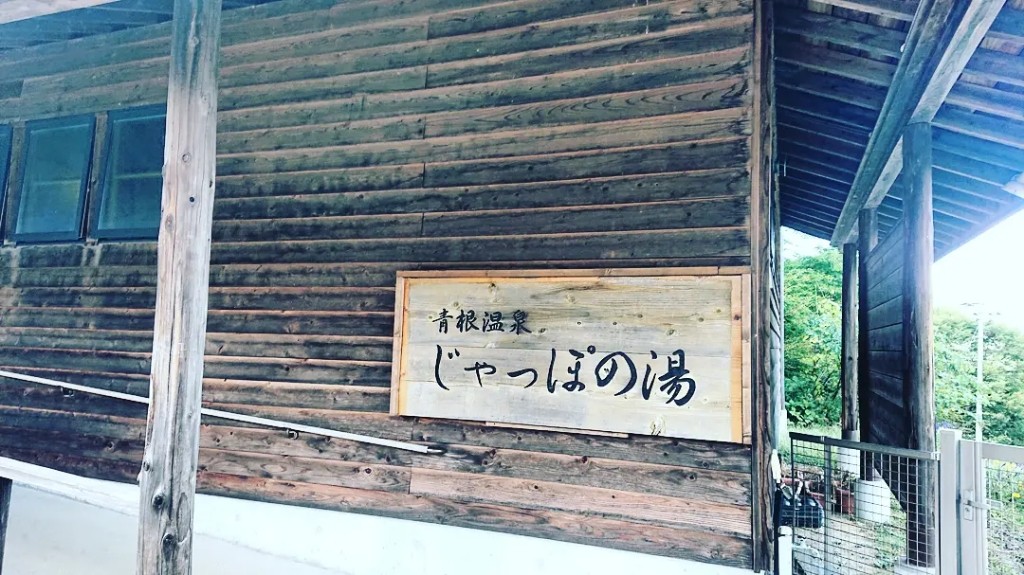 青根温泉
じゃっぽの湯